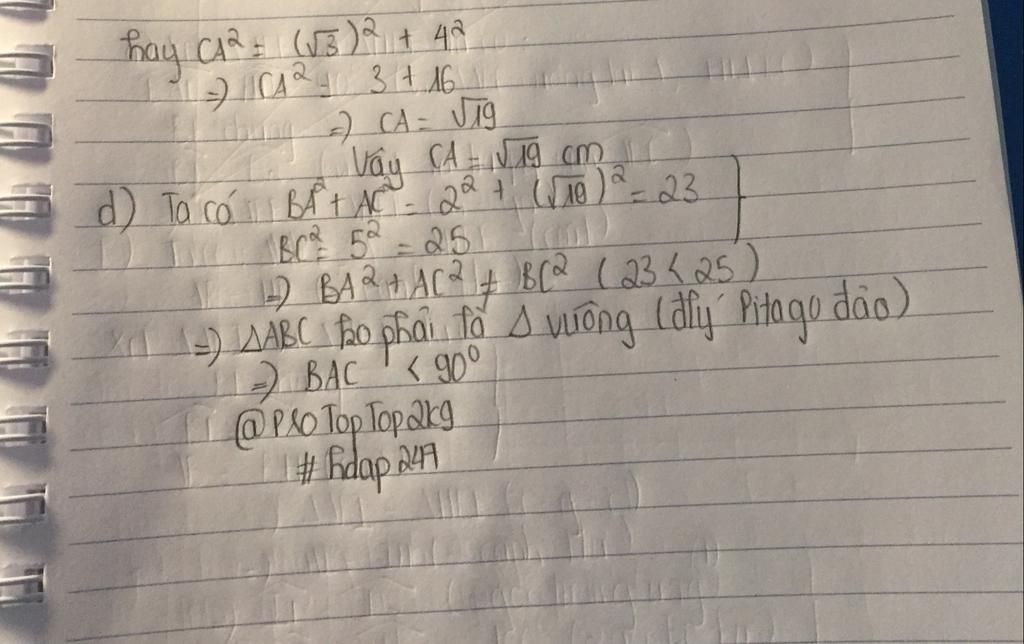 hay CA² = (√3)² + 4²
⇒ CA² = 3 + 16
⇒ CA = √19
Vậy CA = √19 cm
d) Ta có BA² + AC² = 2² + (√19)² = 23
BC² = 5² = 25
⇒ BA² + AC² ≠ BC² (23 < 25)
⇒ ΔABC ko phải là Δ vuông (đlý Pitago đảo)
⇒ BAC < 90⁰
@PROTopTop2kg
#hdap247